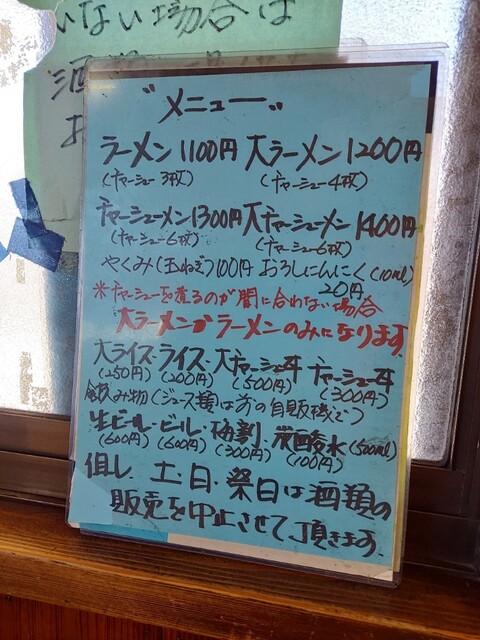 いない場合は
酒
お
"メニュー"
ラーメン1100円 大ラーメン1200円
(チャーシュー3枚) (チャーシュー4枚)
チャーシューメン1300円 大チャーシューメン1400円
(チャーシュー6枚) (チャーシュー6枚)
やくみ(玉ねぎ)100円 おろしにんにく(10ml)
20円
※チャーシューを煮るのが間に合わない場合
大ラーメンかラーメンのみになります
大ライス・ライス・大チャーシュー丼 チャーシュー丼
(250円) (200円) (500円) (300円)
飲み物(ジュース類)は前の自販機で
生ビール・ビール・梅割・炭酸水(500ml)
(600円) (600円) (300円) (100円)
但し、土・日・祭日は酒類の
販売を中止させて頂きます。